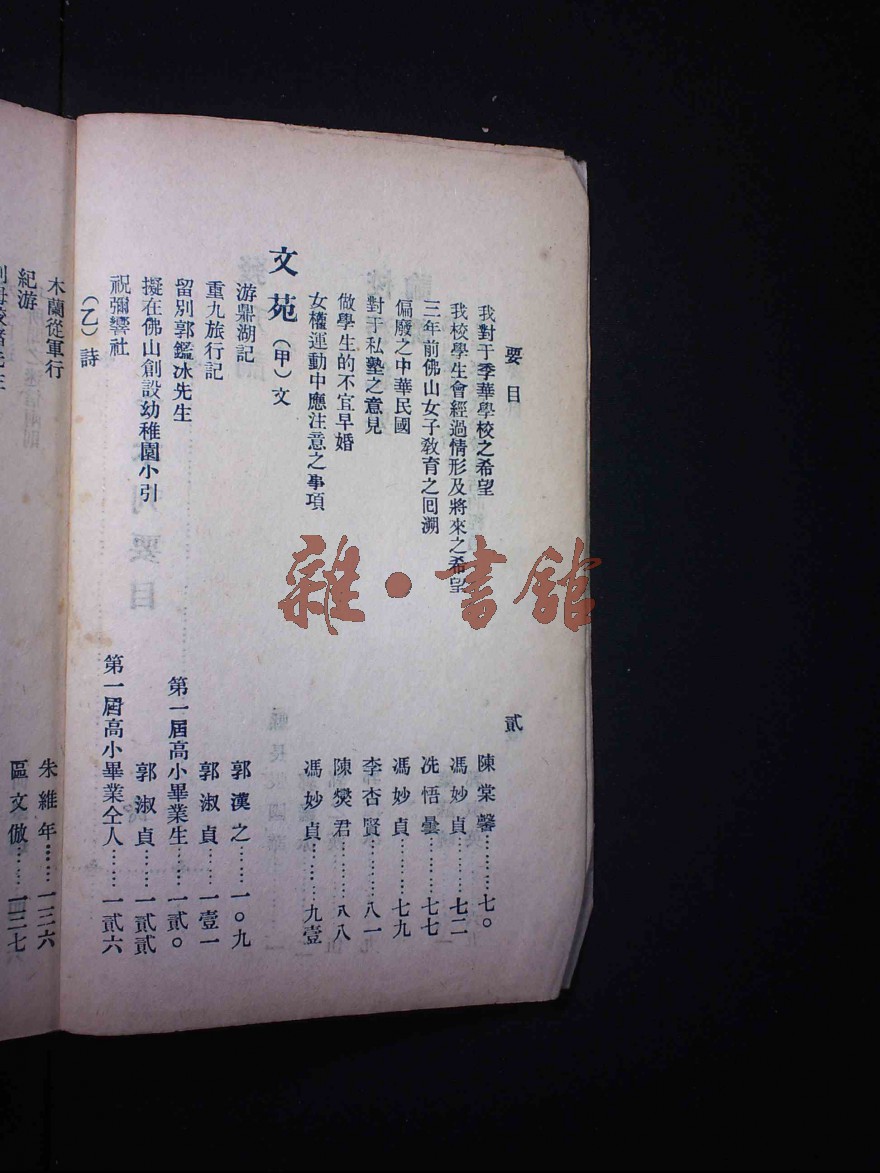 要目 貳
我對于季華學校之希望 陳棠馨………七〇
我校學生會經過情形及將來之希望 馮妙貞………七二
三年前佛山女子敎育之囘溯 冼悟曇………七七
偏廢之中華民國 馮妙貞………七九
對于私塾之意見 李杏賢………八一
做學生的不宜早婚 陳爕君………八八
女權運動中應注意之事項 馮妙貞………九壹
文苑（甲）文
游鼎湖記 郭漢之……一〇九
重九旅行記 郭淑貞……一壹一
留別郭鑑冰先生 第一屆高小畢業生……一貳〇
擬在佛山創設幼稚園小引 郭淑貞……一貳貳
祝彌響社 第一屆高小畢業仝人……一貳六
（乙）詩
木蘭從軍行 朱維年……一三六
紀游 區文倣……一三七
雜·書館